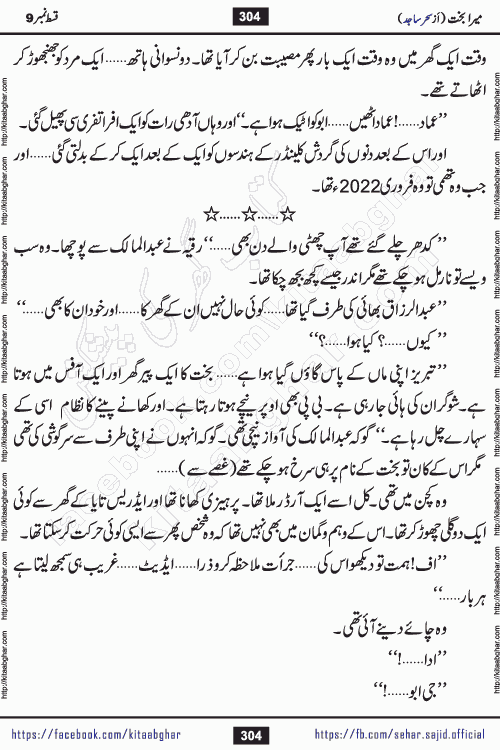 میرا بخت (از سحر ساجد)
304
قسط نمبر 9
وقت ایک گھر میں وہ وقت ایک بار پھر مصیبت بن کر آیا تھا۔ دو نسوانی ہاتھ...... ایک مرد کو جھنجھوڑ کر
اٹھاتے تھے۔
’’عماد......! عماد اٹھیں...... ابو کو اٹیک ہوا ہے۔‘‘ اور وہاں آدھی رات کو ایک افراتفری سی پھیل گئی۔
اور اس کے بعد دنوں کی گردش کلینڈر کے ہندسوں کو ایک کے بعد ایک کر کے بدلتی گئی...... اور
جب وہ تھمی تو وہ فروری 2022ء تھا۔
☆......☆......☆
’’کدھر چلے گئے تھے آپ چھٹی والے دن بھی.....‘‘ رقیہ نے عبدالمالک سے پوچھا۔ وہ سب
ویسے تو نارمل ہو چکے تھے مگر اندر جیسے کچھ بجھ چکا تھا۔
’’عبدالرزاق بھائی کی طرف گیا تھا...... کوئی حال نہیں ان کے گھر کا...... اور خود ان کا بھی......‘‘
’’کیوں......؟ کیا ہوا......؟‘‘
’’تبریز اپنی ماں کے پاس گاؤں گیا ہوا ہے...... بخت کا ایک پیر گھر اور ایک آفس میں ہوتا
ہے۔ شوگر ان کی ہائی جا رہی ہے۔ بی پی بھی اوپر نیچے ہوتا رہتا ہے۔ اور کھانے پینے کا نظام اسی کے
سہارے چل رہا ہے۔‘‘ گو کہ عبدالمالک کی آواز نیچی تھی۔ گو کہ انہوں نے اپنی طرف سے سرگوشی کی تھی
مگر اس کے کان تو بخت کے نام پر ہی سرخ ہو چکے تھے (غصے سے)......
وہ کچن میں تھی۔ کل اسے ایک آرڈر ملا تھا۔ پرہیزی کھانا تھا اور ایڈریس تایا کے گھر سے کوئی
ایک دو گلی چھوڑ کر تھا۔ اس کے وہم و گمان میں بھی نہیں تھا کہ وہ شخص پھر سے ایسی کوئی حرکت کر سکتا تھا۔
’’اف! ہمت تو دیکھو اس کی...... جرأت ملاحظہ کرو ذرا...... ایڈیٹ...... غریب ہی سمجھ لیتا ہے
ہر بار......‘‘
وہ چائے دینے آئی تھی۔
’’ادا......!‘‘
’’جی ابو......!‘‘
https://facebook.com/kitaabghar
304
https://fb.com/sehar.sajid.official
http://kitaabghar.com